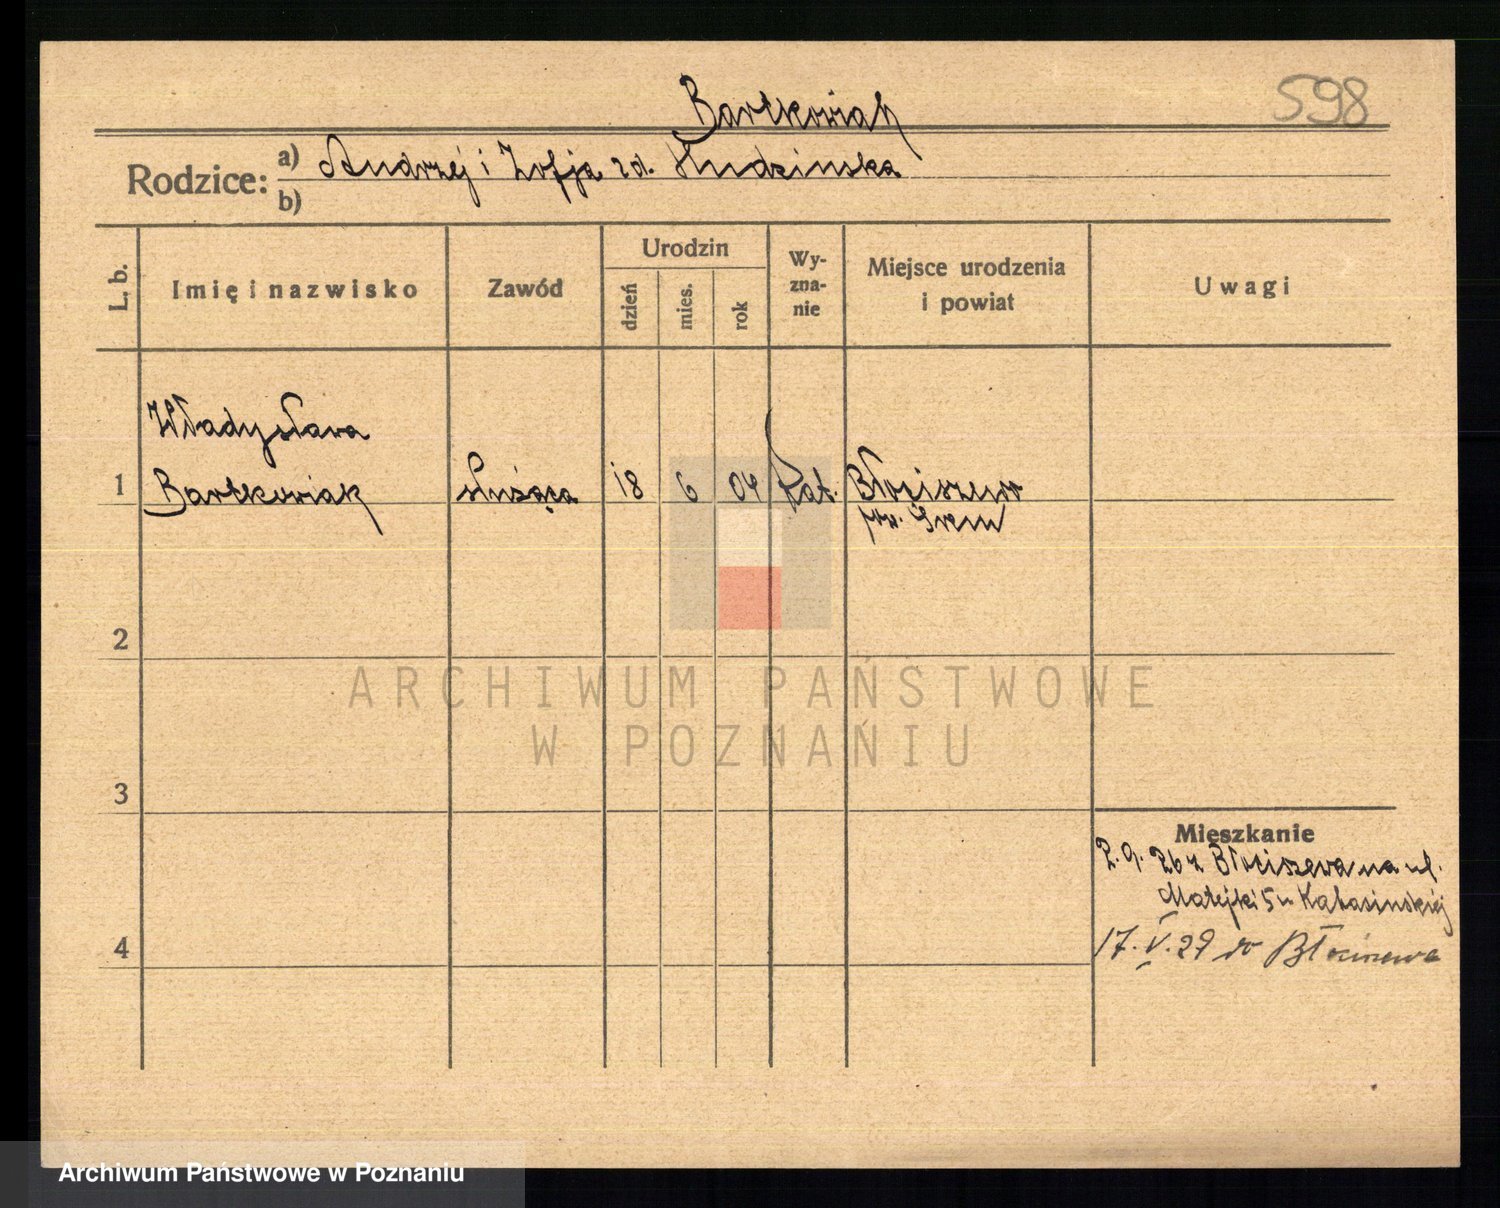 598
Bartkowiak
Rodzice: a) Andrzej i Zofja zd. Hudzinska
b)
L. b.
Imię i nazwisko
Zawód
Urodzin
dzień
mies.
rok
Wy-
zna-
nie
Miejsce urodzenia
i powiat
Uwagi
Władysława
1 Bartkowiak służąca 18 6 04 kat. Błociszewo
pow. Srem
2
3
Mieszkanie
2.9.26 z Błociszewa na ul.
Matejki 5 u Kabasinskiej
4
17.V.29 do Błociszewa
ARCHIWUM PAŃSTWOWE
W POZNANIU
Archiwum Państwowe w Poznaniu